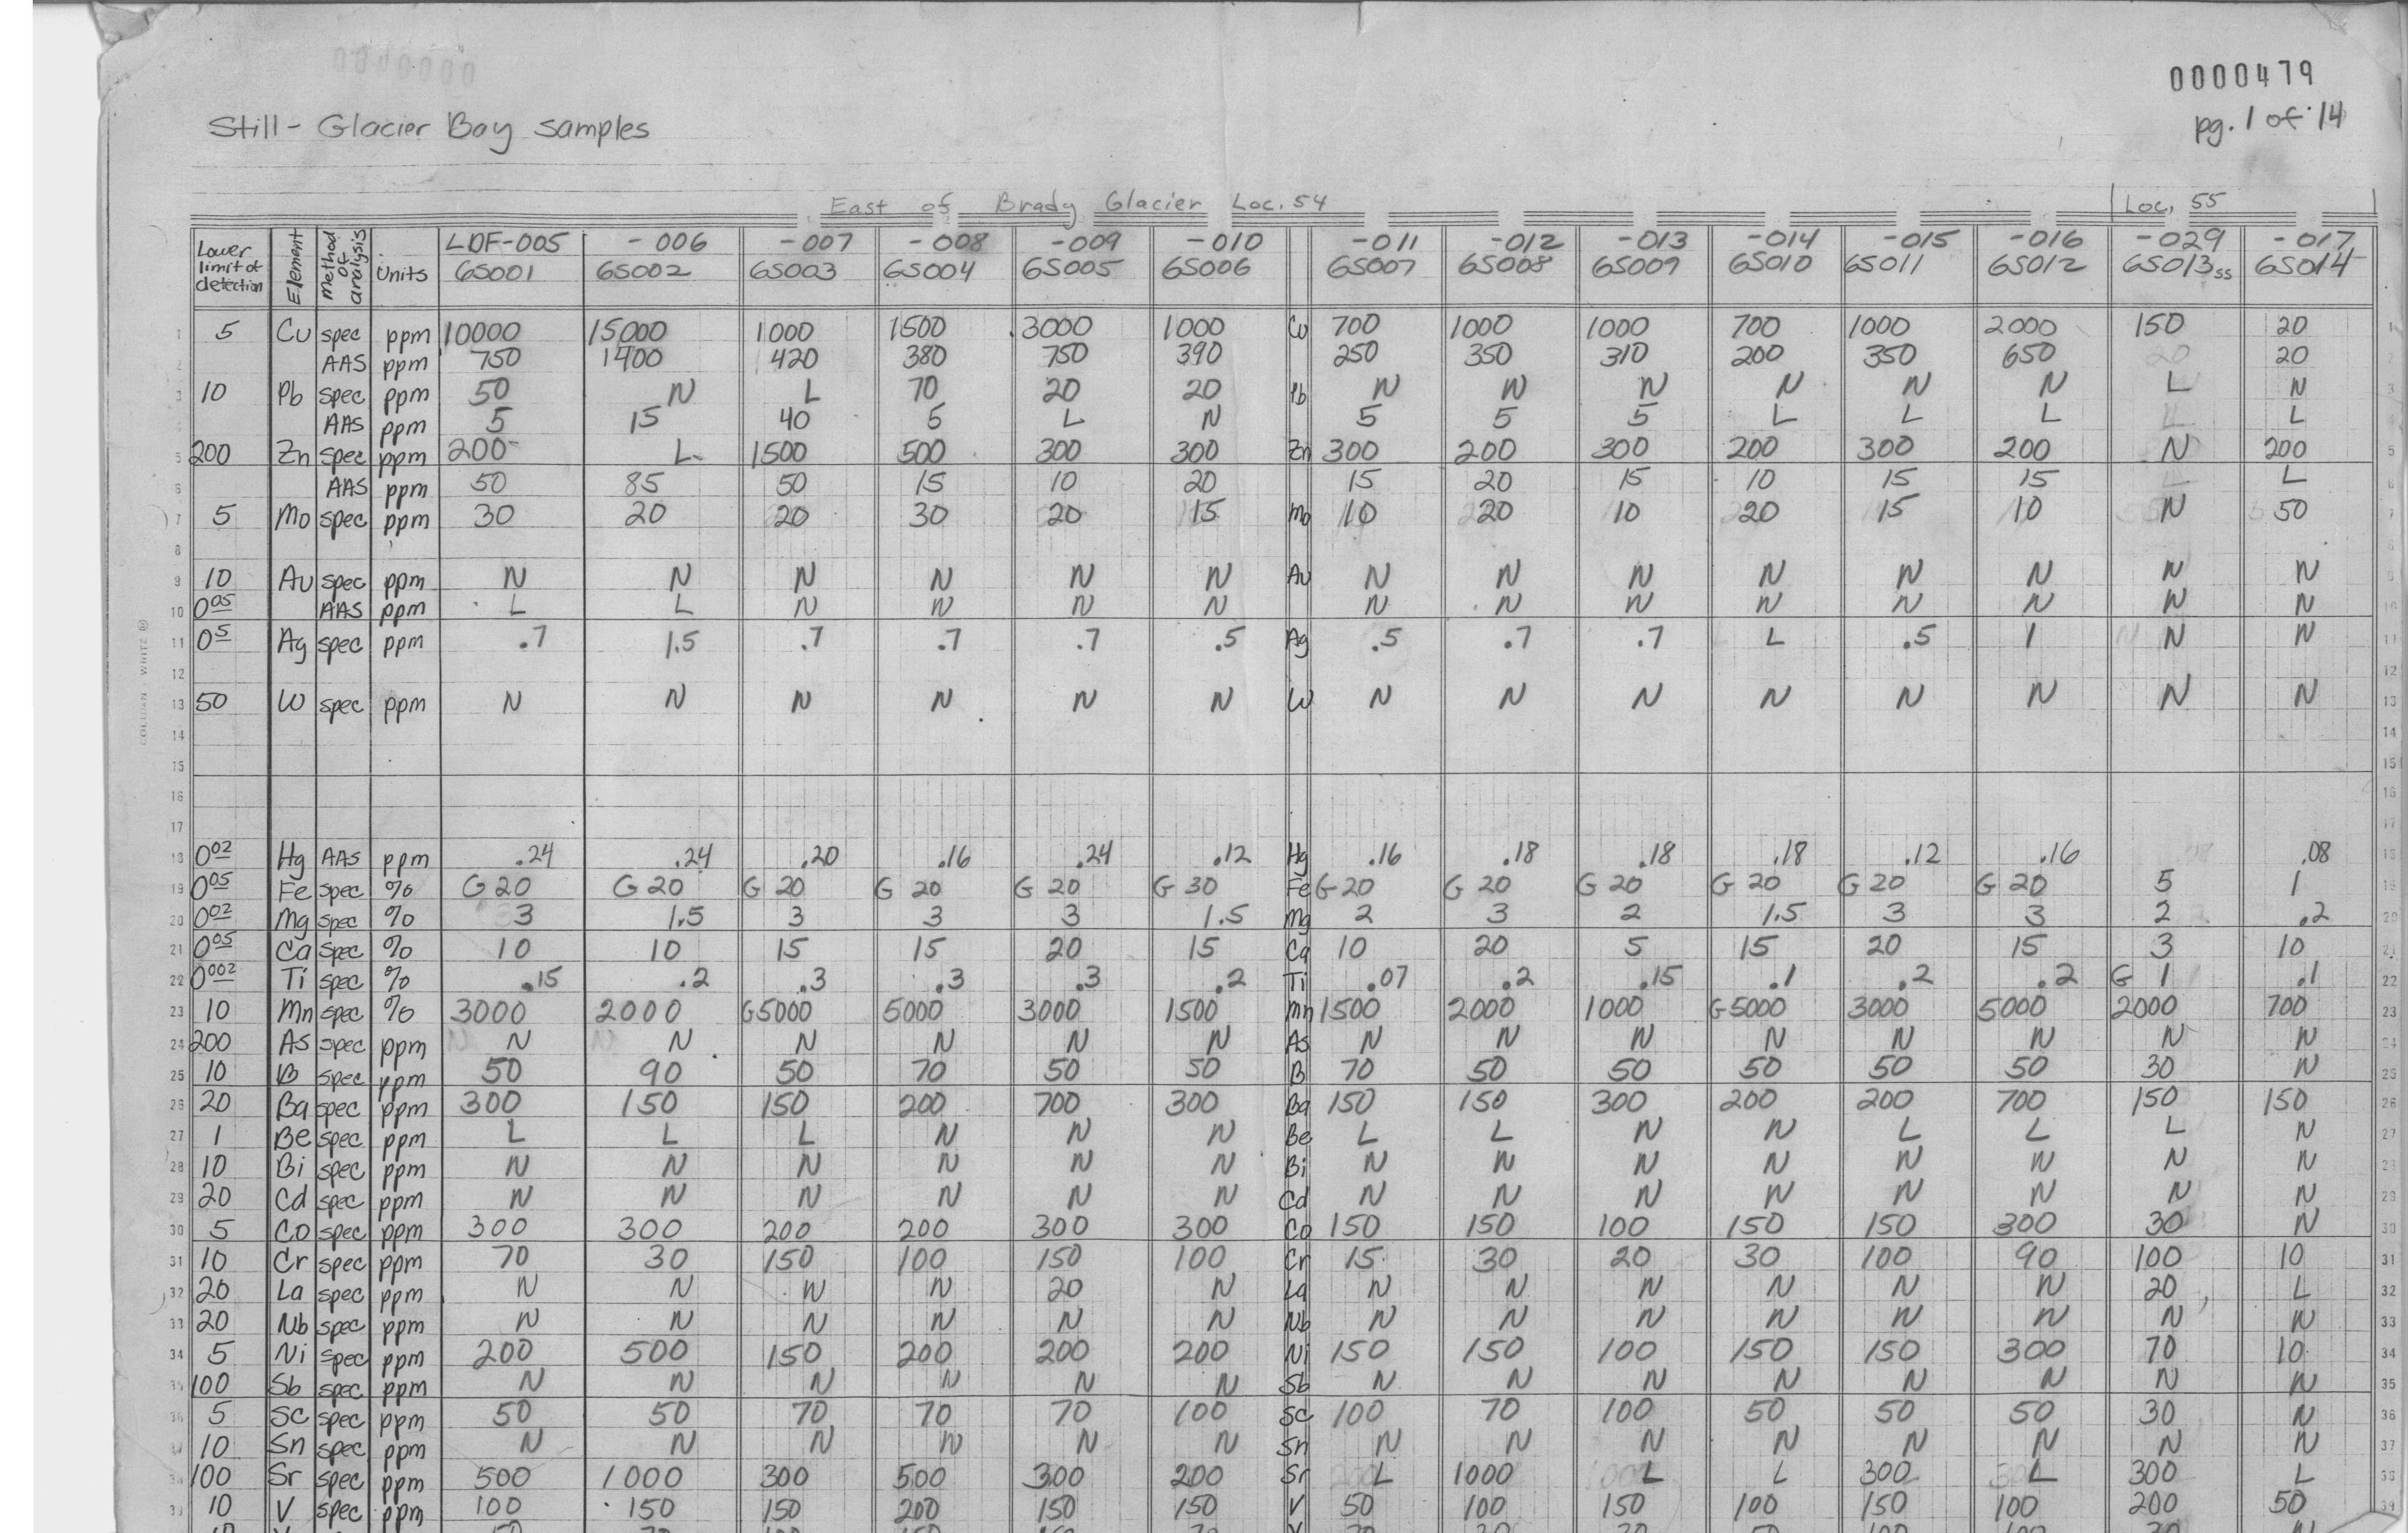 0000479
pg. 1 of 14
Still - Glacier Bay samples
East of Brady Glacier Loc. 54 Loc. 55
Lower limit of detection Element Method of analysis Units LDF-005 -006 -007 -008 -009 -010 -011 -012 -013 -014 -015 -016 -029 -017
6S001 6S002 6S003 6S004 6S005 6S006 6S007 6S008 6S009 6S010 6S011 6S012 6S013ss 6S014
1 5 Cu spec ppm 10000 15000 1000 1500 3000 1000 Cu 700 1000 1000 700 1000 2000 150 20 1
2 AAS ppm 750 1400 420 380 750 390 250 350 310 200 350 650 20 2
3 10 Pb spec ppm 50 N L 70 20 20 Pb N N N N N N L N 3
AAS ppm 5 15 40 5 L N 5 5 5 L L L L
5 200 Zn spec ppm 200 L 1500 500 300 300 Zn 300 200 300 200 300 200 N 200 5
6 AAS ppm 50 85 50 15 10 20 15 20 15 10 15 15 L 6
7 5 Mo spec ppm 30 20 20 30 20 15 Mo 10 20 10 20 15 10 N 50 7
8
9 10 Au spec ppm N N N N N N Au N N N N N N N N
10 0.05 AAS ppm L L N N N N N N N N N N N N 10
11 0.5 Ag spec ppm .7 1.5 .7 .7 .7 .5 Ag .5 .7 .7 L .5 1 N N 11
12 12
13 50 W spec ppm N N N N N N W N N N N N N N N 13
14 14
15 15
16 16
17 17
18 0.02 Hg AAS ppm .24 .24 .20 .16 .24 .12 Hg .16 .18 .18 .18 .12 .16 .08 18
19 0.05 Fe spec % G 20 G 20 G 20 G 20 G 20 G 30 Fe G 20 G 20 G 20 G 20 G 20 G 20 5 1 19
20 0.02 Mg spec % 3 1.5 3 3 3 1.5 Mg 2 3 2 1.5 3 3 2 .2 20
21 0.05 Ca spec % 10 10 15 15 20 15 Ca 10 20 5 15 20 15 3 10 21
22 0.002 Ti spec % .15 .2 .3 .3 .3 .2 Ti .07 .2 .15 .1 .2 .2 G 1 .1 22
23 10 Mn spec % 3000 2000 G5000 5000 3000 1500 Mn 1500 2000 1000 G5000 3000 5000 2000 700 23
24 200 As spec ppm N N N N N N As N N N N N N N N 24
25 10 B spec ppm 50 90 50 70 50 50 B 70 50 50 50 50 50 30 N 25
26 20 Ba spec ppm 300 150 150 200 700 300 Ba 150 150 300 200 200 700 150 150 26
27 1 Be spec ppm L L L N N N Be L L N N L L L N 27
28 10 Bi spec ppm N N N N N N Bi N N N N N N N N 28
29 20 Cd spec ppm N N N N N N Cd N N N N N N N N 29
30 5 Co spec ppm 300 300 200 200 300 300 Co 150 150 100 150 150 300 30 N 30
31 10 Cr spec ppm 70 30 150 100 150 100 Cr 15 30 20 30 100 90 100 10 31
32 20 La spec ppm N N N N 20 N La N N N N N N 20 L 32
33 20 Nb spec ppm N N N N N N Nb N N N N N N N N 33
34 5 Ni spec ppm 200 500 150 200 200 200 Ni 150 150 100 150 150 300 70 10 34
35 100 Sb spec ppm N N N N N N Sb N N N N N N N N 35
36 5 Sc spec ppm 50 50 70 70 70 100 Sc 100 70 100 50 50 50 30 N 36
37 10 Sn spec ppm N N N N N N Sn N N N N N N N N 37
100 Sr spec ppm 500 1000 300 500 300 200 Sr L 1000 L L 300 L 300 L 38
39 10 V spec ppm 100 150 150 200 150 150 V 50 100 150 100 150 100 200 50 39